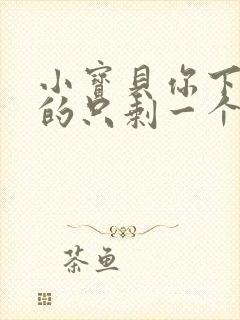 小寳貝你下
的只剩一个
茶鱼